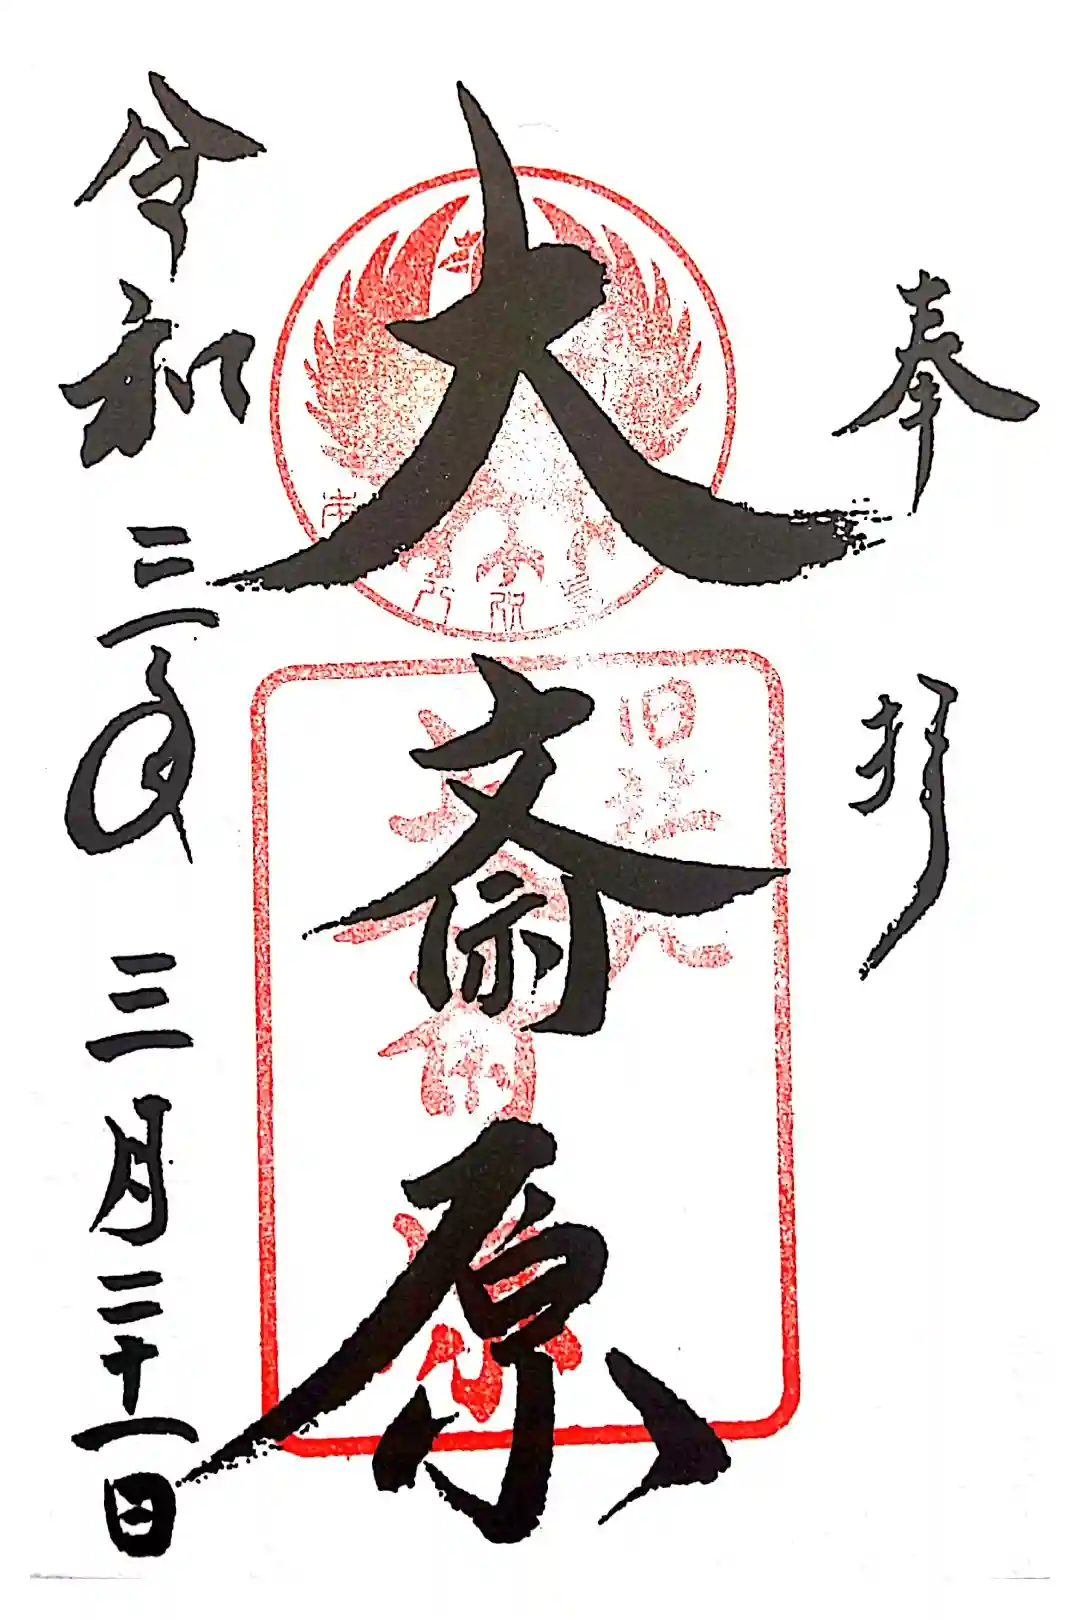 奉拝
大斎原
旧社地
大斎原
令和三年三月二十一日